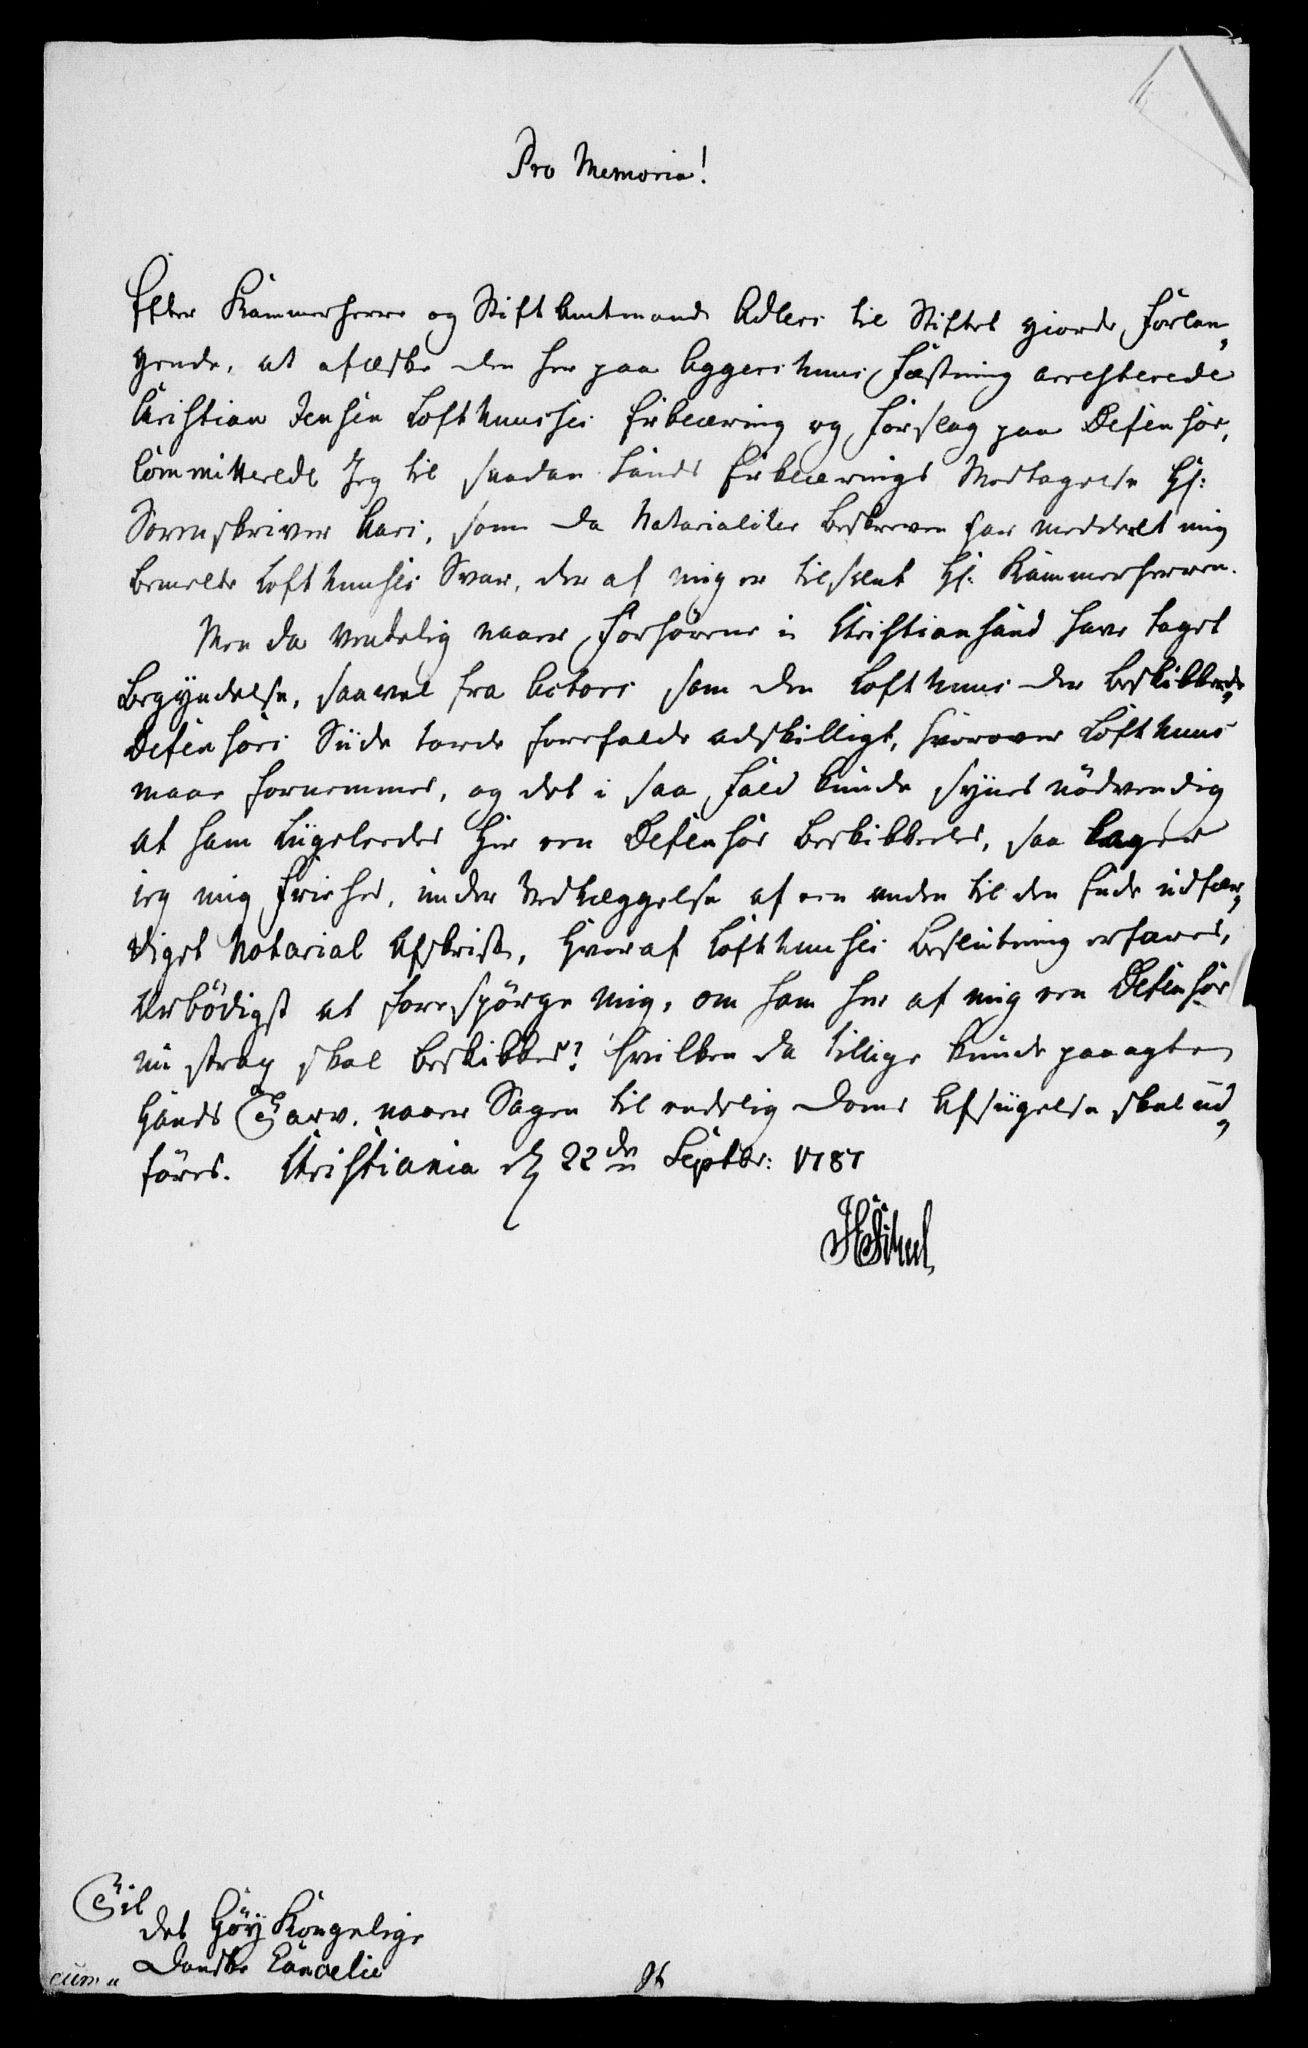 Pro Memoria!
Efter Kammerherre og Stiftamtmand Adlers til Stiftet giorde Forlan„
gende, at afæske den her paa Aggershuus Fæstning arresterede
Christian Jensen Lofthuuses Erklæring og Forslag paa Defensor,
Committerede Jeg til saadan hands Erklærings Modtagelse Hr:
Sorenskriver Aars, som da Notarialiter beskreven har meddeelt mig
bemelte Lofthuuses Svar, der af mig er tilsendt Hr: Kammerherren.
Men da vendelig naar Forhørene i Christiansand have taget
Begyndelse, saavel fra Actors som den Lofthuus der beskikkede
Defensors Siide torde forefalde adskilligt, hvorover Lofthuus
maae fornemmes, og det i saa Fald kunde synes nødvendig
at ham liigeleedes her een Defensor beskikkedes, saa tager
ieg mig Friehed, under Vedlæggelse af een anden til den Ende udfær„
diget Notarial Afskrift, hvoraf Lofthuuses Beslutning erfares,
ærbødigst at forespørge mig, om ham her af mig een Defensor
nu strax skal beskikkes? hvilken da tillige kunde paaagte
hands Tarv, naar Sagen til endelig Doms Afsiigelse skal ud„
føres. Christiania d 22de Septbr: 1787
Til
det Høy Kongelige
Danske Cancelie